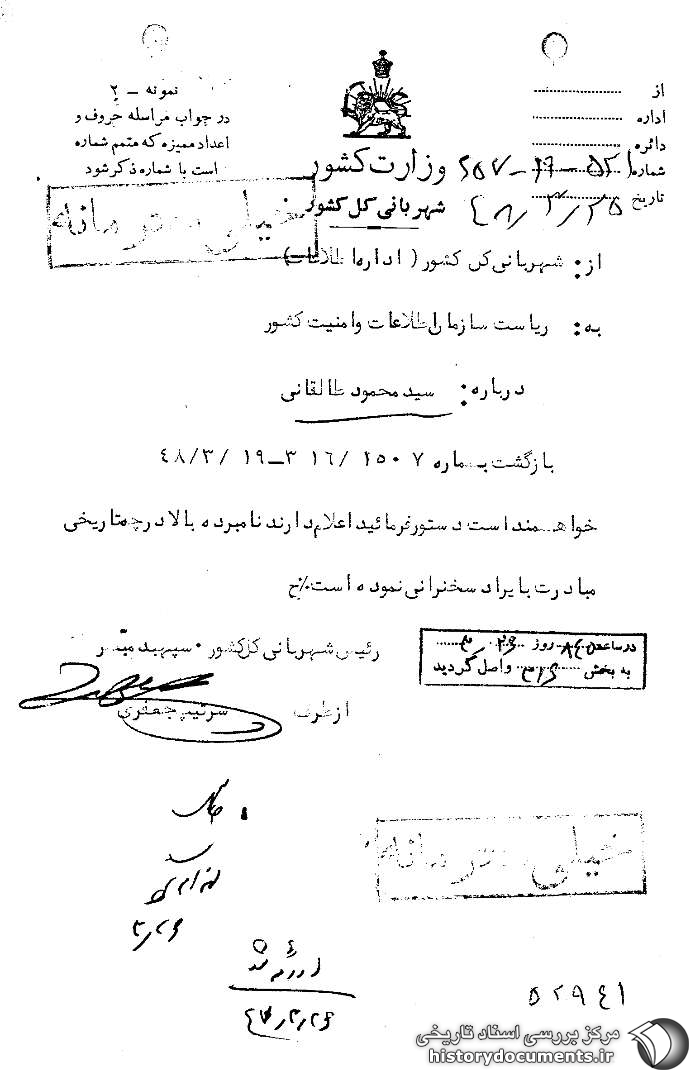 نمونه – ۲
در جواب مراسله حروف و
اعداد ممیزه که متمم شماره
است با شماره ذکر شود
وزارت کشور
شهربانی کل کشور
از
اداره
دائره
شماره
تاریخ ۴۸/۳/۲۵
خیلی محرمانه
از: شهربانی کل کشور (اداره اطلاعات)
به: ریاست سازمان اطلاعات و امنیت کشور
درباره: سید محمود طالقانی
بازگشت بشماره ۱۵۰۷ /۱۶ ۳–۱۹ /۴۸/۳
خواهشمند است دستور فرمائید اعلام دارند نامبرده بالا در چه تاریخی
مبادرت بایراد سخنرانی نموده است%خ
رئیس شهربانی کل کشور . سپهبد مبصر
از طرف سرتیپ جعفری
در ساعت روز
به بخش واصل گردید
خیلی محرمانه
۵۲۹۴۱
مرکز بررسی اسناد تاریخی
historydocuments.ir